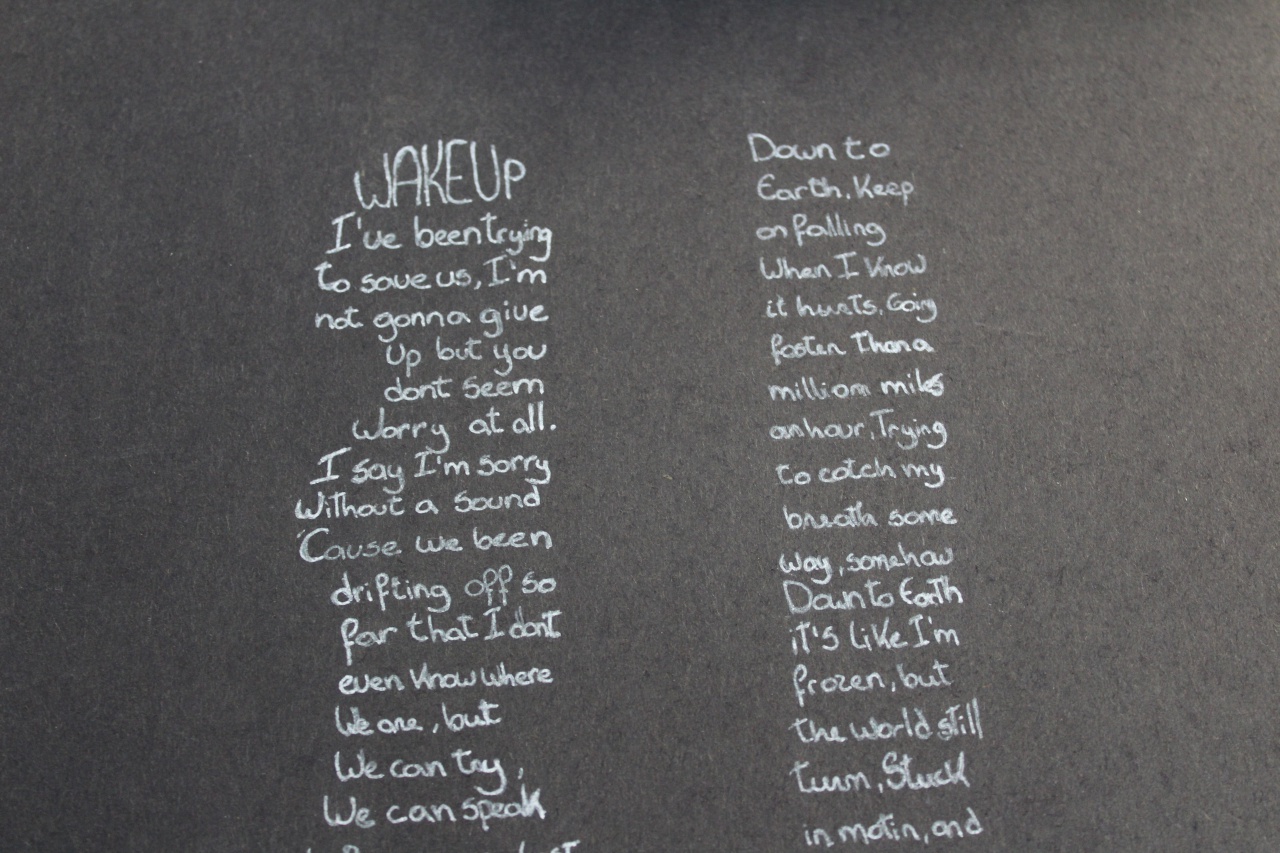 WAKEUP
I've been trying
to save us, I'm
not gonna give
Up but you
dont seem
Worry at all.
I say I'm sorry
Without a sound
'Cause we been
drifting off so
far that I dont
even Know where
We are, but
We can try,
We can speak
Down to
Earth, Keep
on falling
When I Know
it hurts, Going
faster Than a
million miles
an hour, Trying
to catch my
breath some
way, somehow
Down to Earth
it's like I'm
frozen, but
the world still
turn, Stuck
in motin, and